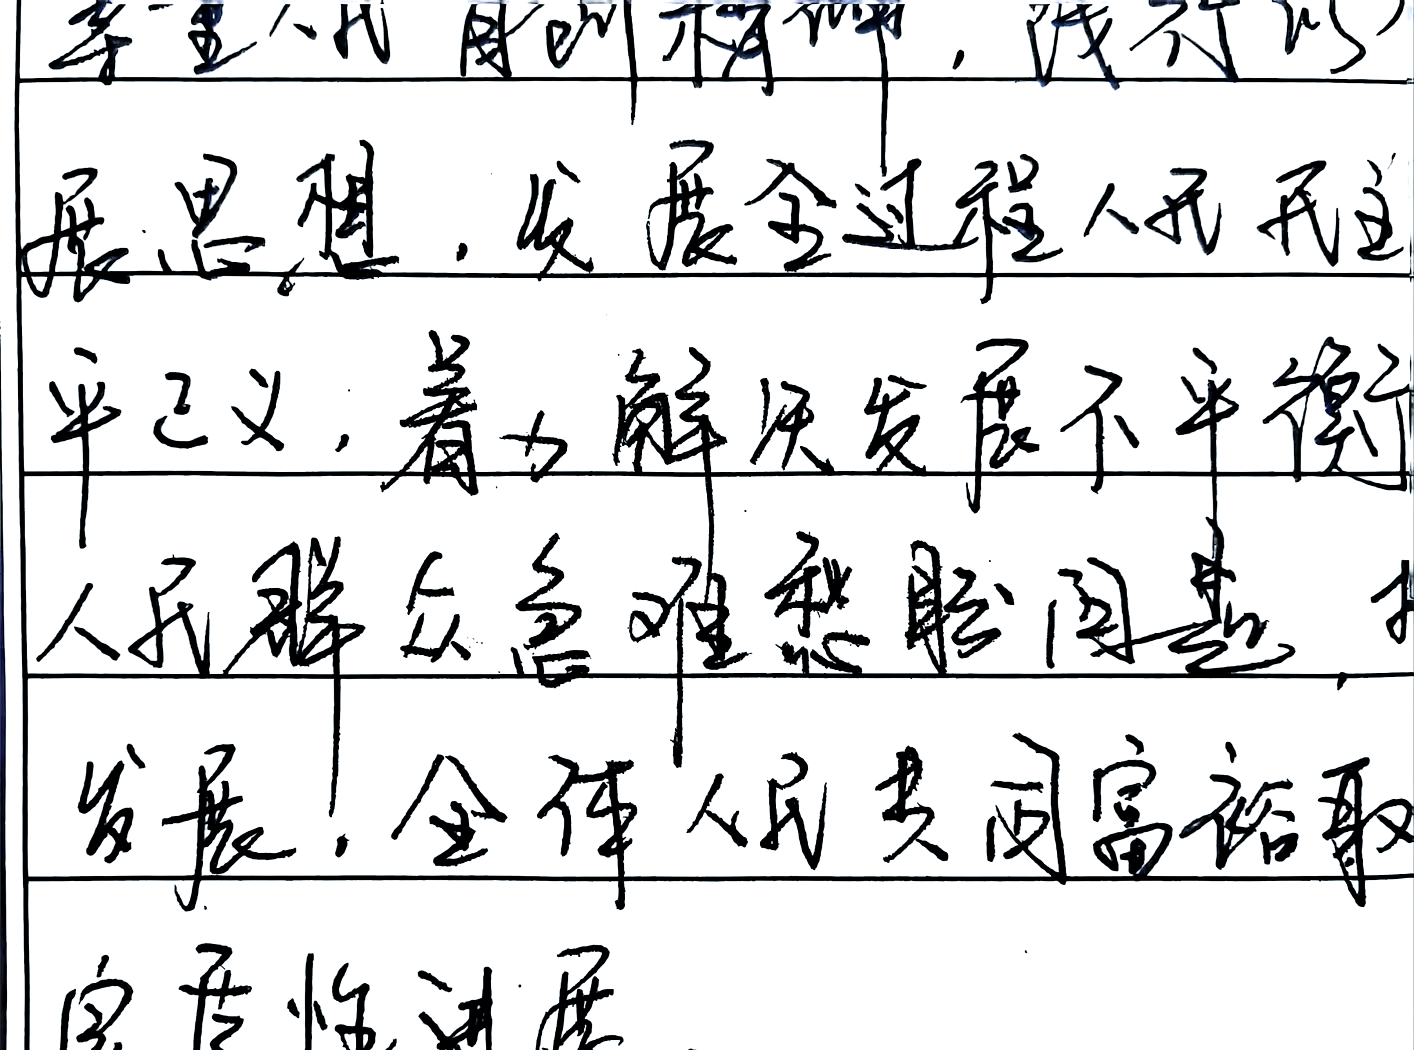 尊重人民首创精神，践行以
展思想，发展全过程人民民主
平正义，着力解决发展不平衡
人民群众急难愁盼问题，
发展，全体人民共同富裕取
实质性进展